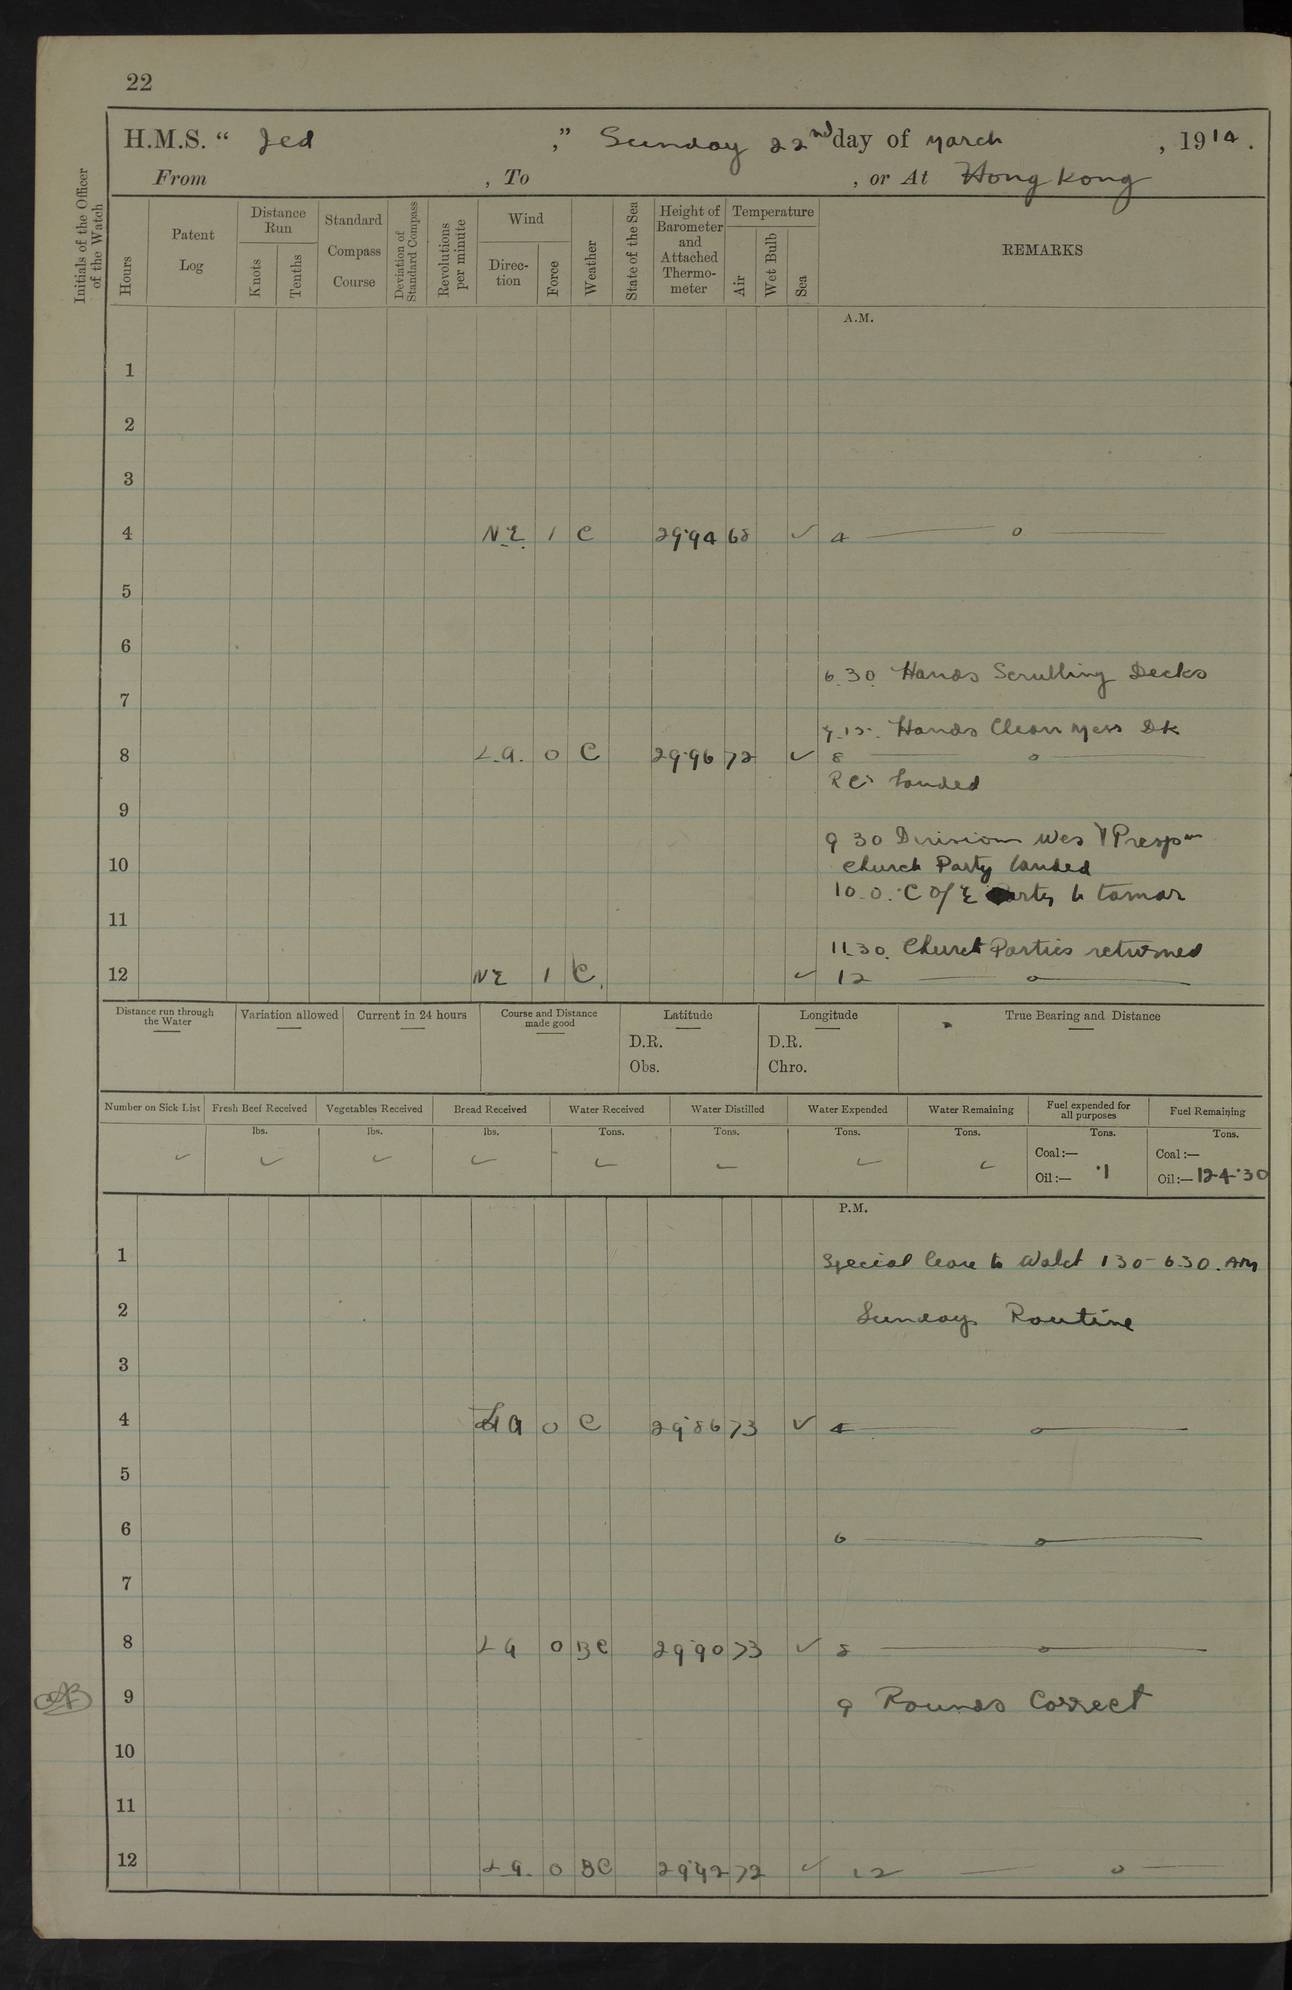 22
H.M.S. “ Jed ,” Sunday 22nd day of March , 1914.
From , To , or At Hong Kong
Initials of the Officer of the Watch
Hours
Patent Log
Distance Run
Knots
Tenths
Standard Compass Course
Deviation of Standard Compass
Revolutions per minute
Wind
Direction
Force
Weather
State of the Sea
Height of Barometer and Attached Thermometer
Temperature
Air
Wet Bulb
Sea
REMARKS
A.M.
1
2
3
4 N.E. 1 C 29.94 68 ✓ 4 — o —
5
6
6.30. Hands Scrubbing Decks
7
7.15. Hands Clean Mess Dk
8 L.A. 0 C 29.96 72 ✓ 8 — o —
RCs landed
9
9 30 Divisions Wes & Presp
10 Church Party landed
10.0. C of E Party to Tamar
11
11.30. Church Parties returned
12 NE 1 C. ✓ 12 — o —
Distance run through the Water
Variation allowed
Current in 24 hours
Course and Distance made good
Latitude
D.R.
Obs.
Longitude
D.R.
Chro.
True Bearing and Distance
Number on Sick List ✓
Fresh Beef Received lbs. ✓
Vegetables Received lbs. ✓
Bread Received lbs. ✓
Water Received Tons. ✓
Water Distilled Tons. ✓
Water Expended Tons. ✓
Water Remaining Tons. ✓
Fuel expended for all purposes Tons.
Coal:—
Oil:— .1
Fuel Remaining Tons.
Coal:—
Oil:— 124.30
P.M.
1 Special leave to Watch 1 30 - 6.30. AM
2 Sundays Routine
3
4 LA 0 C 29.86 73 ✓ 4 — o —
5
6 6 — o —
7
8 LA 0 BC 29.90 73 ✓ 8 — o —
9 9 Rounds Correct
10
11
12 L.A. 0 BC 29.92 72 ✓ 12 — o —